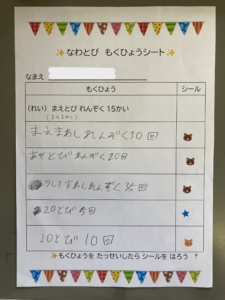 ✨なわとび もくひょうシート✨
なまえ
もくひょう シール
(れい) まえとび れんぞく 15かい
まえまわしれんぞく30回
あやとびれんぞく20回
うしろまわしれんぞく35回
20とび 5回
20とび 10回
✨もくひょうを たっせいしたら シールを はろう ↑